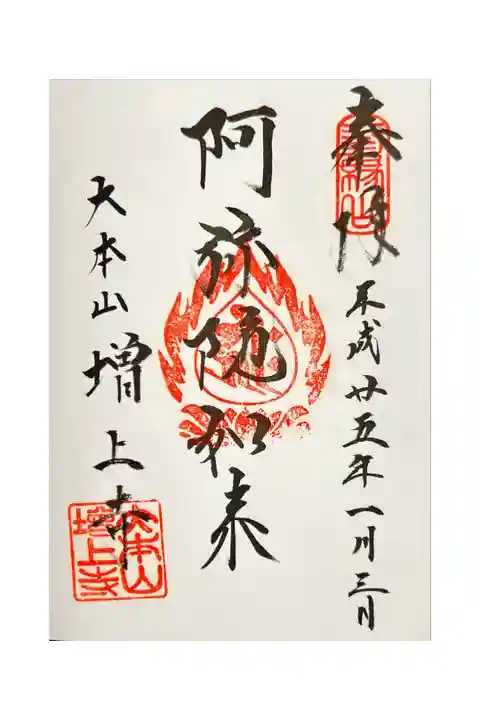 奉拝
平成廿五年一月三日
阿弥陀如来
大本山 増上寺
大本山
増上寺